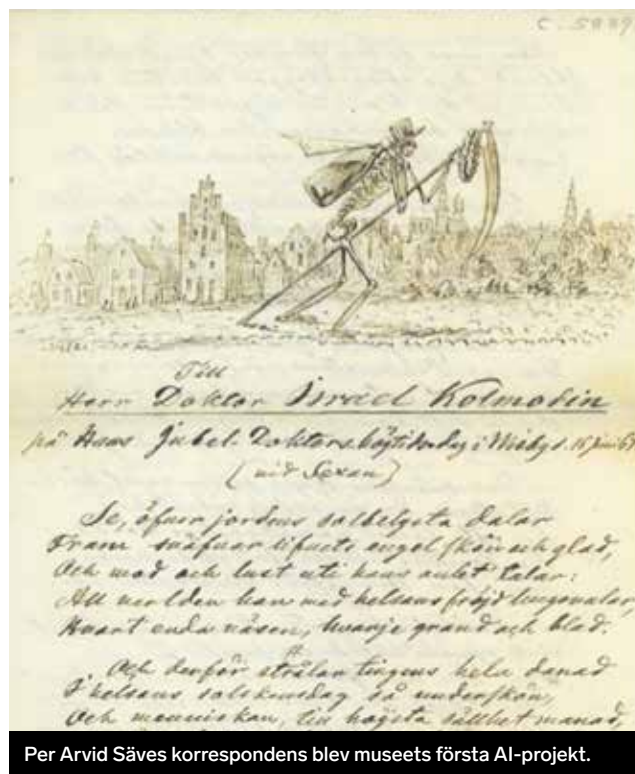 C. 5889
Till
Herr Doktor Israel Kolmodin
på Hans Jubel-Doktorshögtidsdag i Wisby d. 16 juni 6
(vid Sexan)
Se, öfver jordens solbelysta dalar
Fram sväfvar lifvets engel skön och glad,
Och mod och lust uti hans anlet talar:
All verlden han med helsans fröjd hugsvalar,
Hvart enda väsen, hvarje grand och blad.
Och derför strålar tingens hela danad
I helsans solskensdag så underskön,
Och menniskan, till högsta sällhet manad,
Per Arvid Säves korrespondens blev museets första AI-projekt.